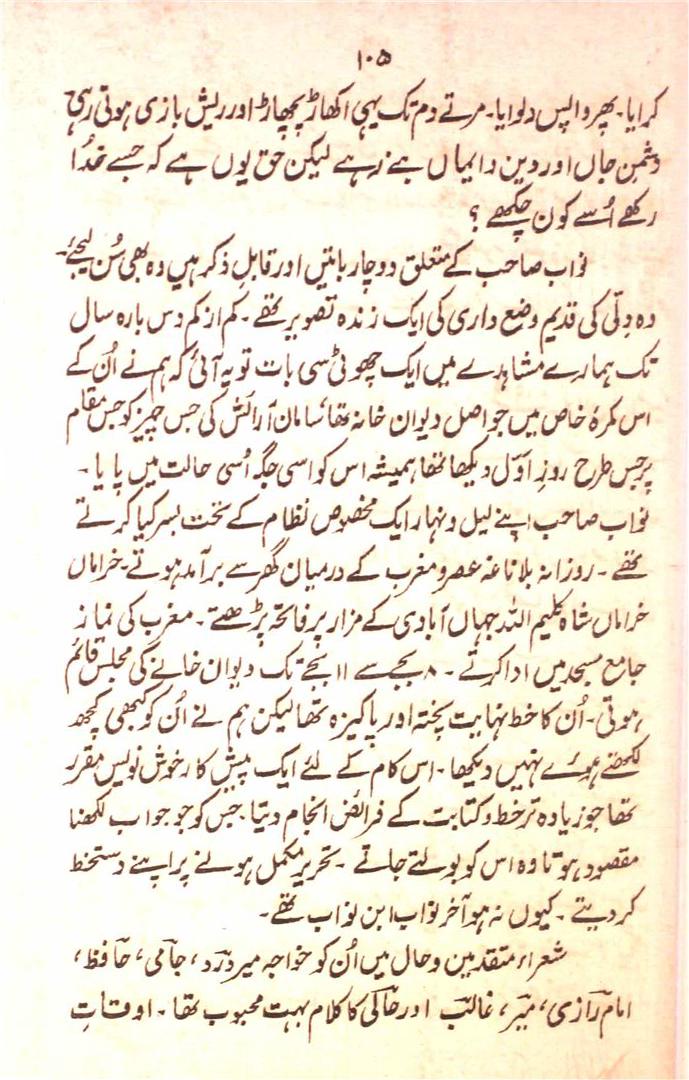 ۱۰۵
کرایا۔ پھر واپس دلوایا۔ مرتے دم تک یہی اکھاڑ پچھاڑ اور ریش بازی ہوتی رہی
دشمنِ جاں اور دین و ایماں بنے رہے لیکن حق یوں ہے کہ جسے خدُا
رکھے اُسے کون چکھے ؟
نواب صاحب کے متعلق دو چار باتیں اور قابلِ ذکر ہیں وہ بھی سُن لیجئے۔
وہ دِلّی کی قدیم وضع داری کی ایک زندہ تصویر تھے۔ کم از کم دس بارہ سال
تک ہمارے مشاہدے میں ایک چھوٹی سی بات تو یہ آئی کہ ہم نے اُن کے
اس کمرۂ خاص میں جو اصل دیوان خانہ تھا سامانِ آرائش کی جس چیز کو جس مقام
پر جس طرح روزِ اوّل دیکھا تھا ہمیشہ اس کو اسی جگہ اُسی حالت میں پایا۔
نواب صاحب اپنے لیل و نہار ایک مخصوص نظام کے تحت بسر کیا کرتے
تھے۔ روزانہ بلا ناغہ عصر و مغرب کے درمیان گھر سے برآمد ہوتے۔ خراماں
خراماں شاہ کلیم اللہ جہاں آبادی کے مزار پر فاتحہ پڑھتے۔ مغرب کی نماز
جامع مسجد میں ادا کرتے۔ ۸ بجے سے ۱۱ بجے تک دیوان خانے کی مجلس قائم
ہوتی۔ اُن کا خط نہایت پختہ اور پاکیزہ تھا لیکن ہم نے اُن کو کبھی کچھ
لکھتے ہوئے نہیں دیکھا۔ اس کام کے لئے ایک پیش کار خوش نویس مقرر
تھا جو زیادہ تر خط و کتابت کے فرائض انجام دیتا۔ جس کو جو جواب لکھنا
مقصود ہوتا وہ اس کو بولتے جاتے۔ تحریر مکمل ہونے پر اپنے دستخط
کر دیتے۔ کیوں نہ ہو آخر نواب ابن نواب تھے۔
شعراء متقدمین و حال میں اُن کو خواجہ میر درؔد، جاؔمی، حافؔظ،
امام راؔزی، میؔر، غالبؔ اور حاؔلی کا کلام بہت محبوب تھا۔ اوقاتِ